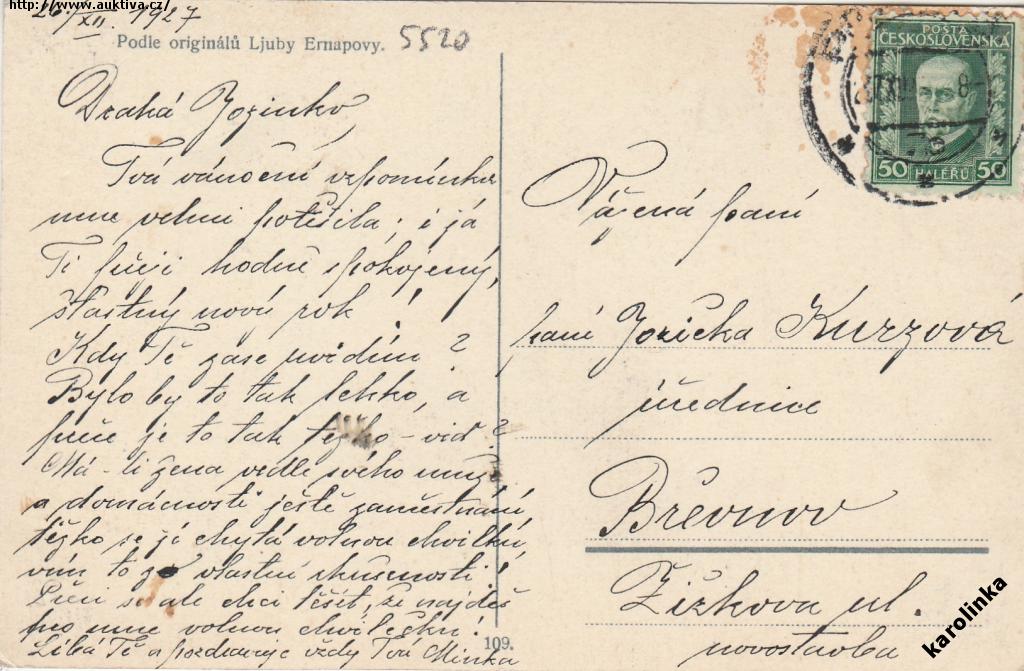 http://www.auktiva.cz/
26./XII 1927
Podle originálů Ljuby Ernapovy.
5520
Drahá Jozinko,
Tvá vánoční vzpomínka
mne velmi potěšila; i já
Ti přeji hodně spokojený,
šťastný nový rok!
Kdy Tě zase uvidím?
Bylo by to tak lehko, a
přece je to tak těžko – viď?
Má-li žena vedle svého muže
a domácnosti ještě zaměstnání
těžko se jí chytá volnou chvilku,
vím to z vlastní zkušenosti!
Přeci se ale chci těšit, že najdeš
pro mne volnou chvilečku!
Líbá Tě a pozdravuje vždy Tvá Minka
109.
POŠTA
ČESKOSLOVENSKÁ
50 HALÉŘŮ 50
Vážená paní
paní Jozička Kurzová
úřednice
Břevnov
Žižkova ul.
novostavba
karolinka